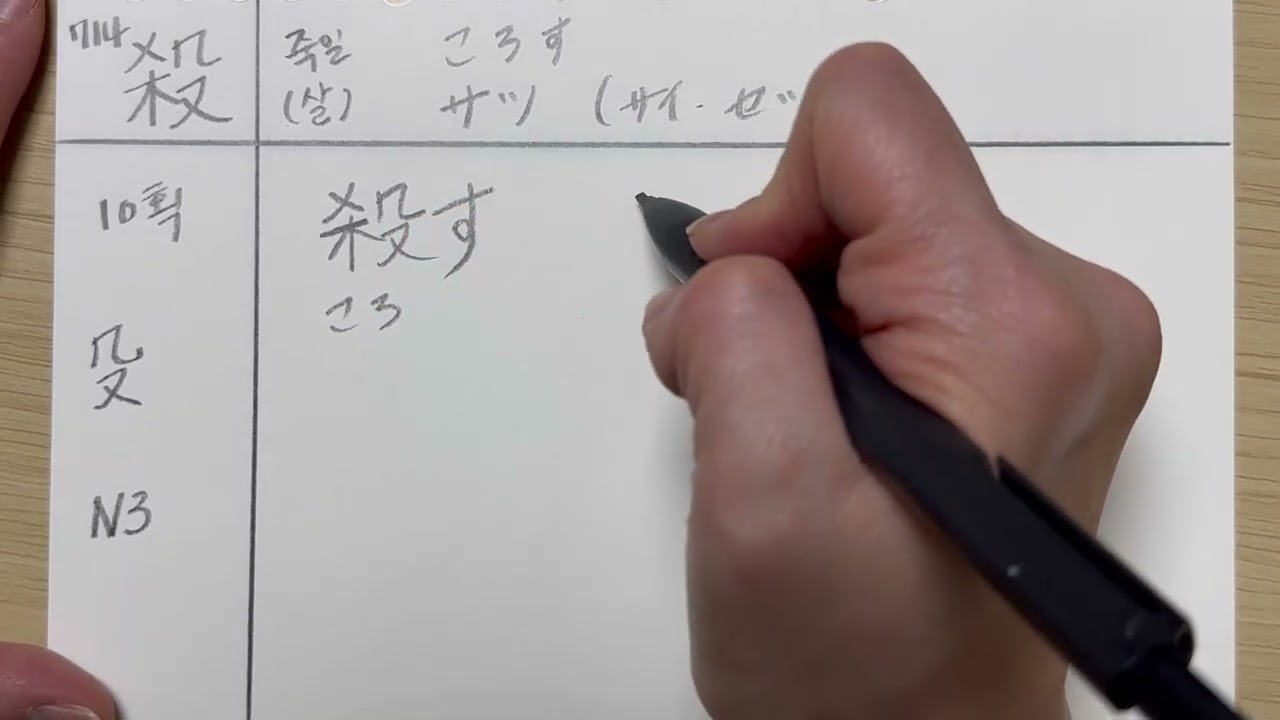 714 殺 죽일 ころす
(살) サツ (サイ・セツ
10획 殺す
ころ
殳
N3